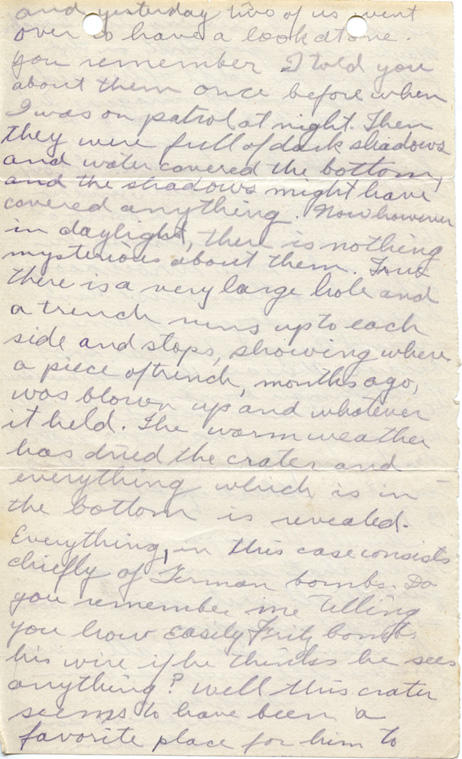 and yesterday two of us went
over to have a look at one.
you remember I told you
about them once before when
I was on patrol at night. Then
they were full of dark shadows
and water covered the bottom,
and the shadows might have
covered anything. Now however
in daylight, there is nothing
mysterious about them. True
there is a very large hole and
a trench runs up to each
side and stops, showing where
a piece of trench, months ago,
was blown up and whatever
it held. The warm weather
has dried the crater and
everything which is in
the bottom is revealed.
Everything, in this case consists
chiefly of German bombs. Do
you remember me telling
you how easily Fritz bombs
his wire if he thinks he sees
anything? Well this crater
seems to have been a
favorite place for him to